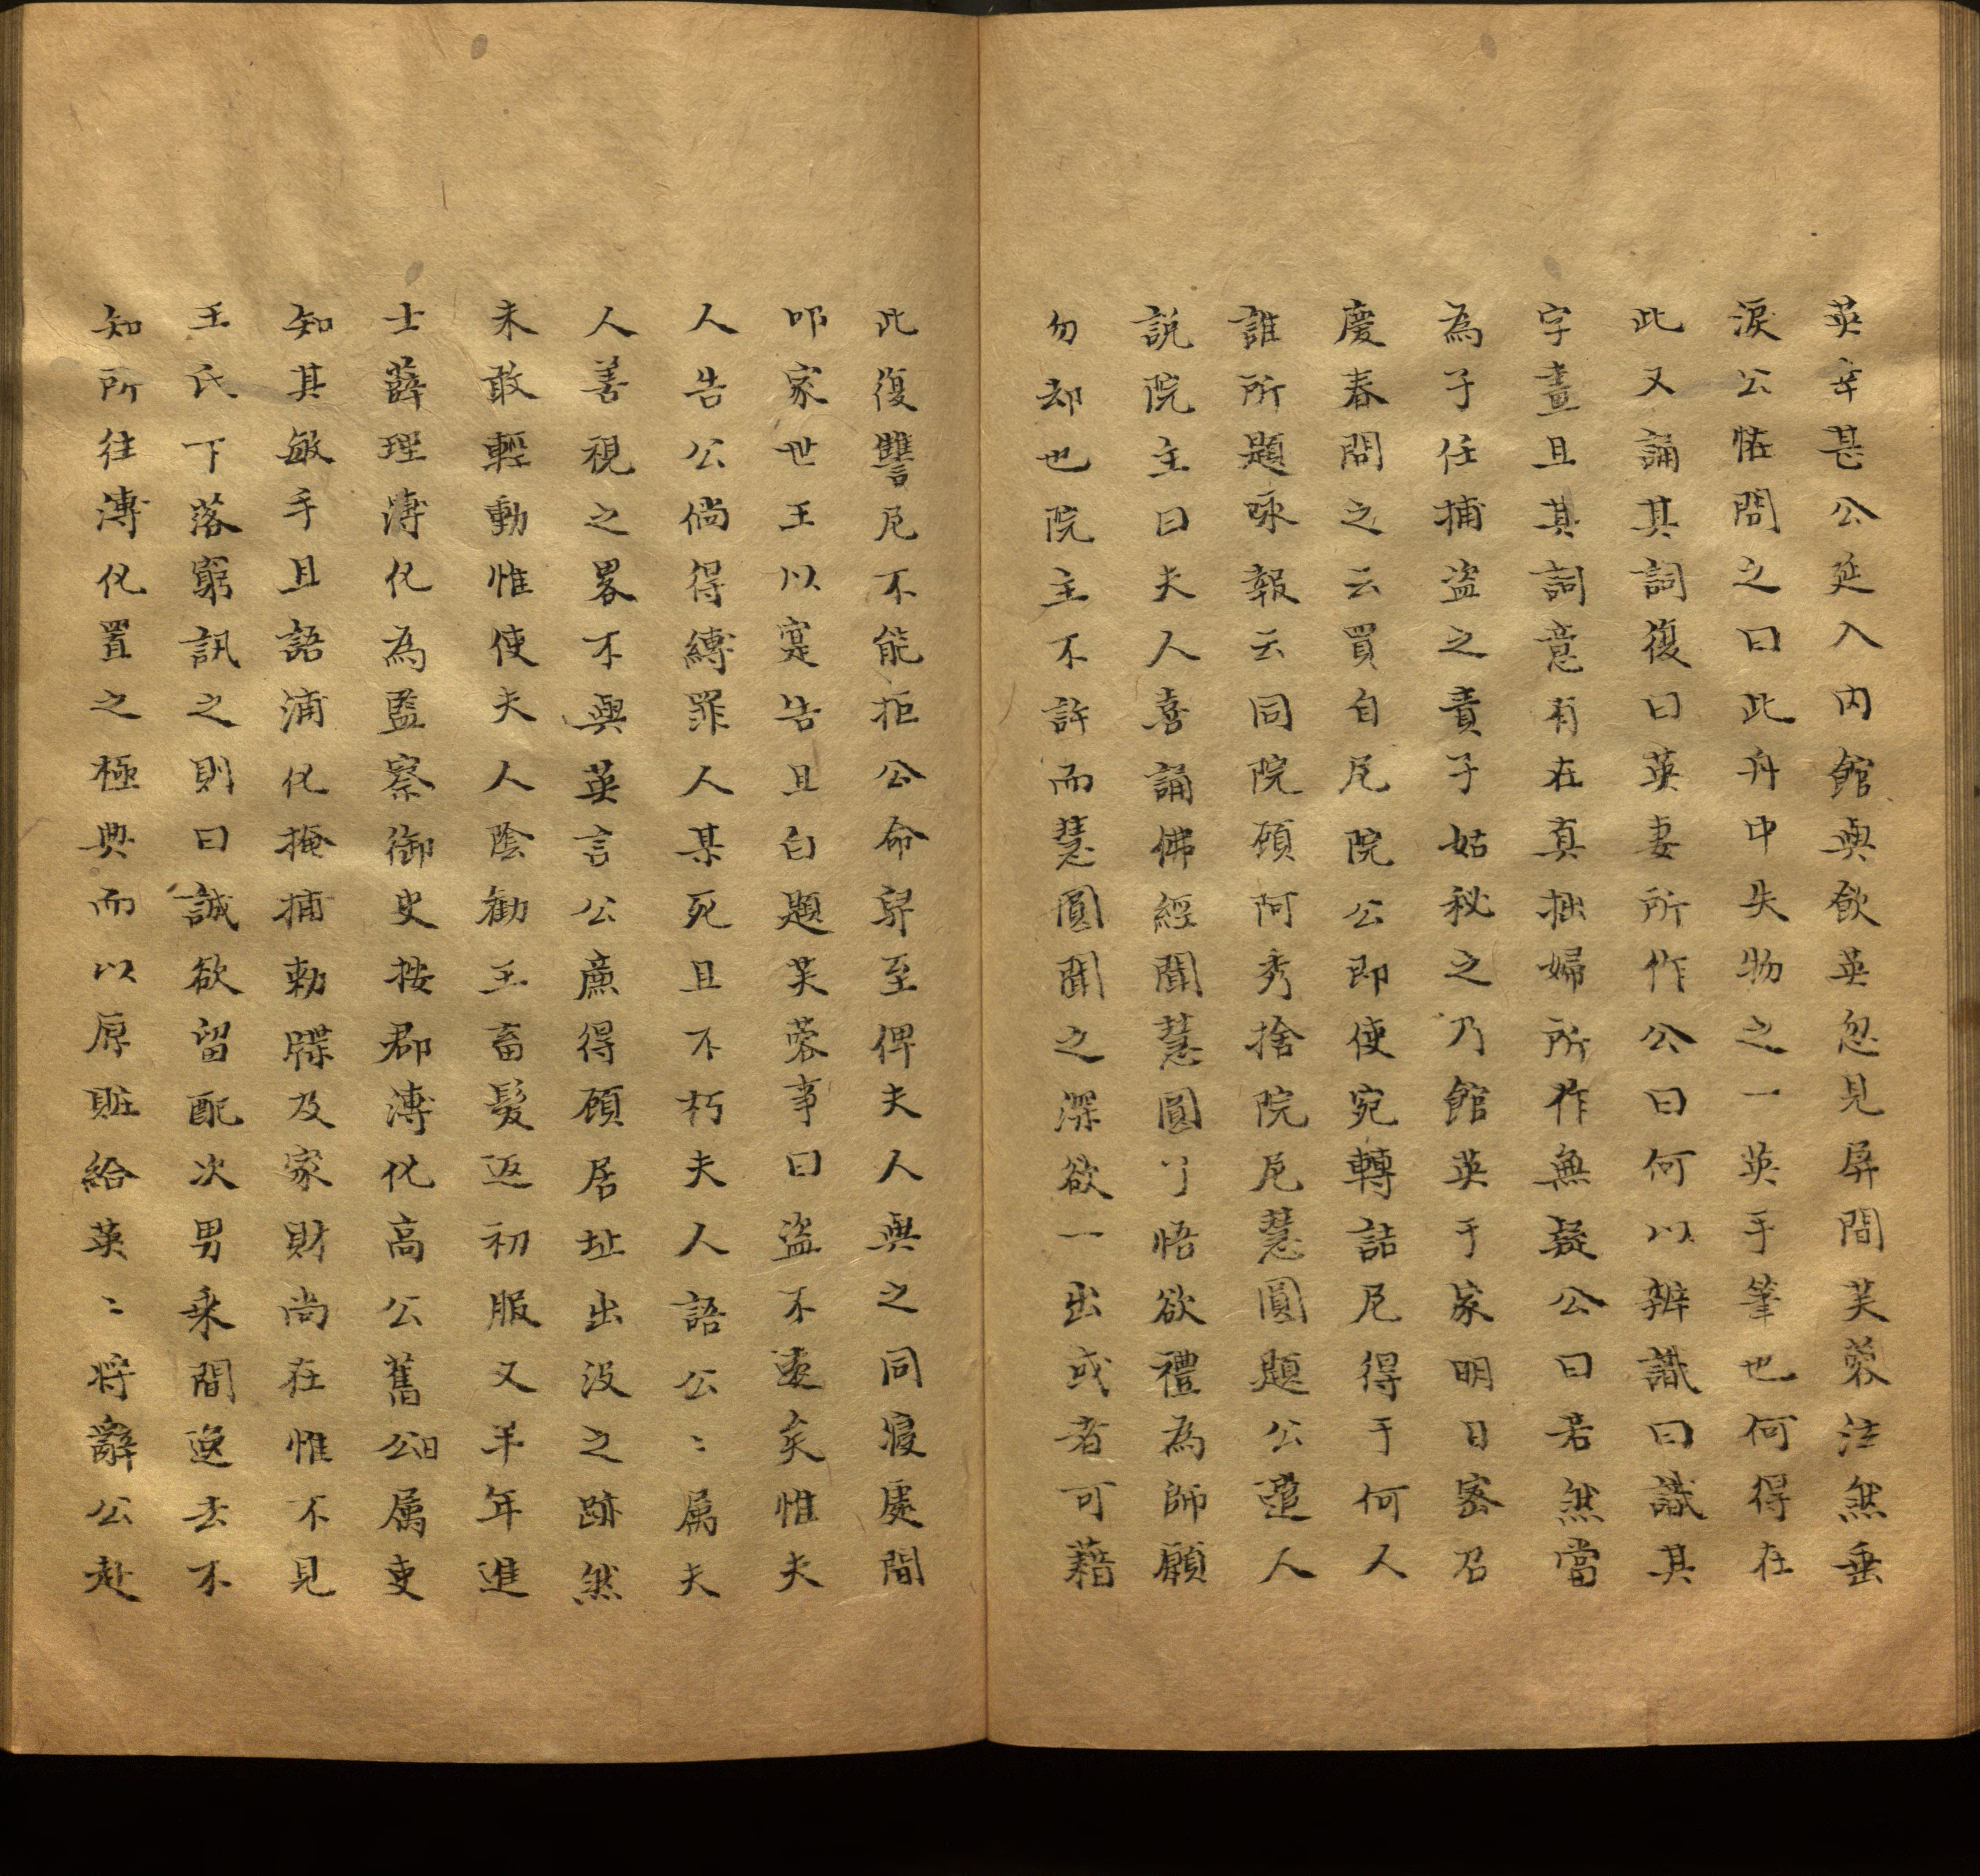 英辛甚公延入內館與飲英忽見屏間芙蓉泫然垂
淚公恠問之曰此舟中失物之一英手筆也何得在
此又誦其詞復曰英妻所作公曰何以辨識曰識其
字畫且其詞意有在真拙婦所作無疑公曰若然當
為子任捕盜之責子姑秘之乃館英于家明日密召
慶春問之云買自尼院公即使宛轉詰尼得于何人
誰所題咏報云同院顧阿秀捨院尼慧圓題公遣人
說院主曰夫人喜誦佛經聞慧圓了悟欲禮為師願
勿却也院主不許而慧圓聞之深欲一出或者可藉
此復讐尼不能拒公命舁至俾夫人與之同寢處間
叩家世王以寔告且白題芙蓉事曰盜不遠矣惟夫
人告公倘得縛罪人某死且不朽夫人語公〻属夫
人善視之畧不與英言公廉得顧居址出没之跡然
未敢輕動惟使夫人陰勸王畜髮返初服又半年進
士薛理溥化為監察御史按郡溥化高公舊日公属吏
知其敏手且語浦化掩捕勅牒及家財尚在惟不見
王氏下落窮訊之則曰誠欲留配次男乘間逸去不
知所往溥化置之極典而以原賍給英〻将辭公赴